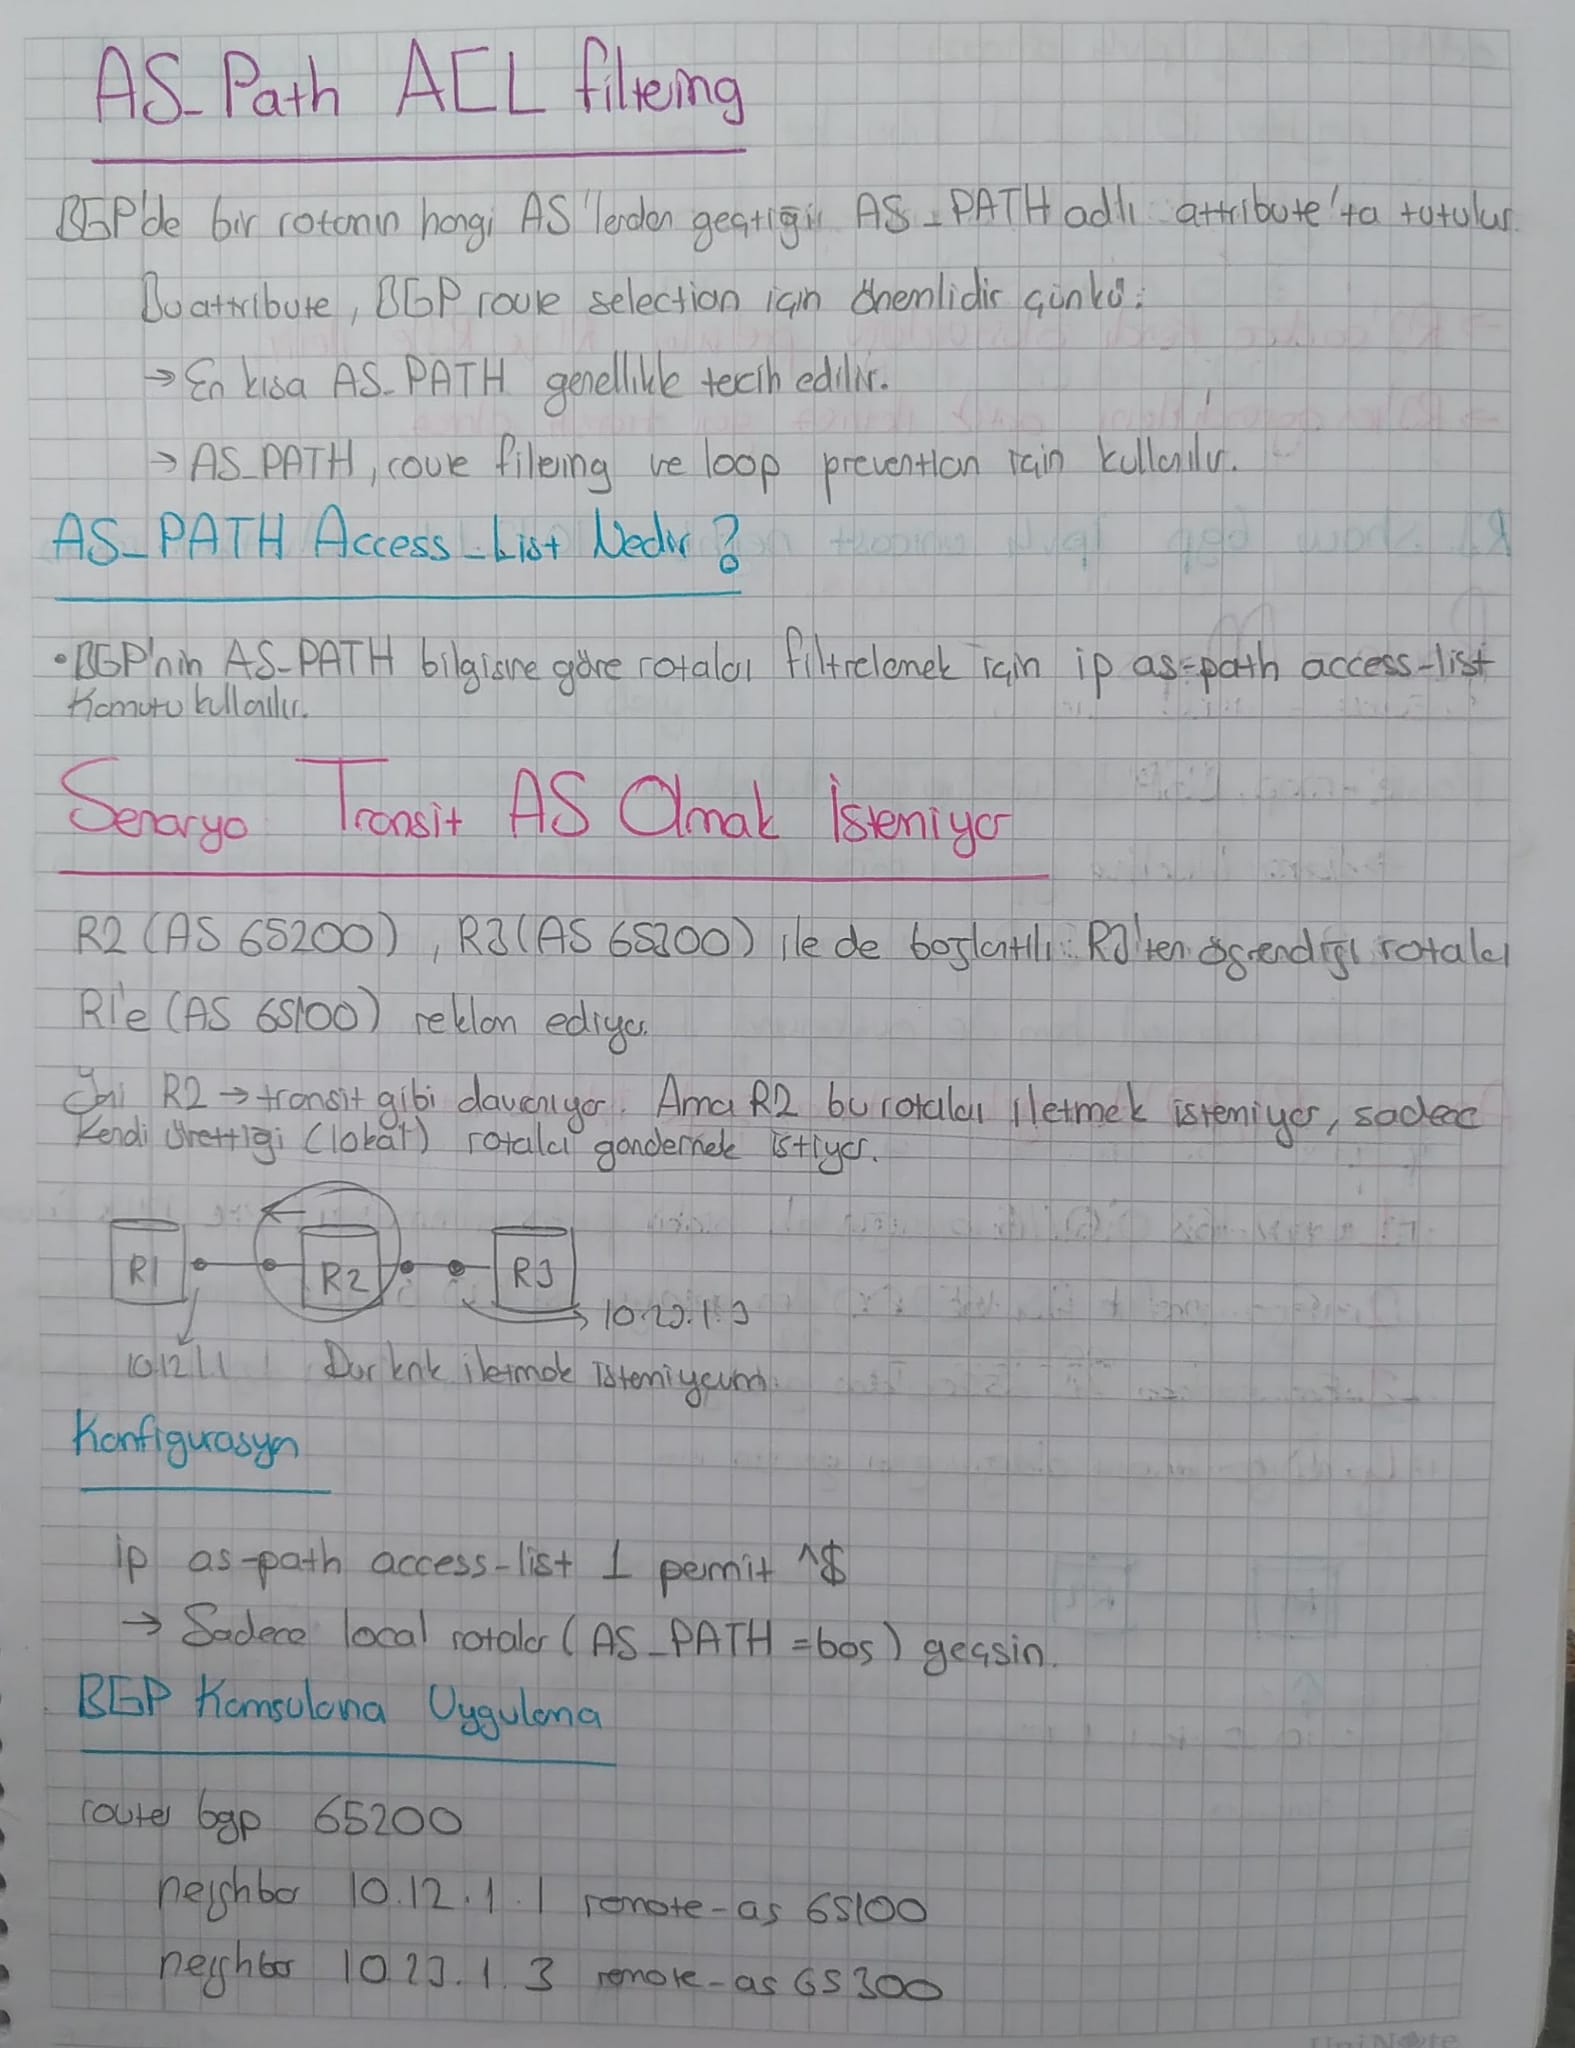 AS_Path ACL filtering
BGP'de bir rotanın hangi AS'lerden geçtiği AS_PATH adlı attribute'ta tutulur.
Bu attribute, BGP route selection için önemlidir çünkü:
→ En kısa AS_PATH genellikle tercih edilir.
→ AS_PATH, route filtering ve loop prevention için kullanılır.
AS_PATH Access_List Nedir?
• BGP'nin AS_PATH bilgisine göre rotaları filtrelemek için ip as-path access-list
Komutu kullanılır.
Senaryo Transit AS Olmak İstemiyor
R2 (AS 65200), R3 (AS 65300) ile de bağlantılı. R3'ten öğrendiği rotaları
R1'e (AS 65100) reklam ediyor.
Yani R2 → transit gibi davranıyor. Ama R2 bu rotaları iletmek istemiyor, sadece
Kendi ürettiği (lokal) rotaları göndermek istiyor.
R1 R2 R3
10.23.1.3
10.12.1.1 Dur knk iletmek istemiyorum.
Konfigurasyon
ip as-path access-list 1 permit ^$
→ Sadece local rotalar (AS_PATH = boş) geçsin.
BGP Komsularına Uygulama
router bgp 65200
neighbor 10.12.1.1 remote-as 65100
neighbor 10.23.1.3 remote-as 65300